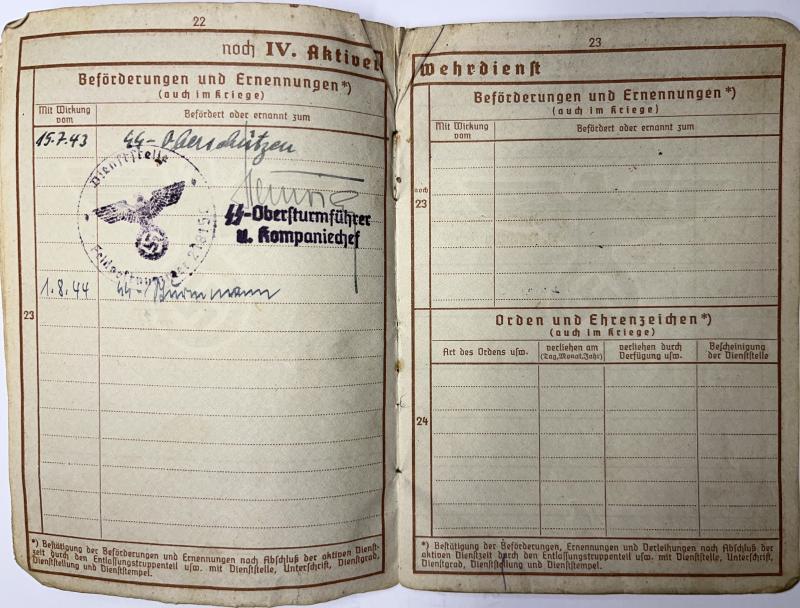 22
noch IV. Aktiver
Beförderungen und Ernennungen*)
(auch im Kriege)
Mit Wirkung vom
Befördert oder ernannt zum
15.7.43 SS-Oberschützen
Dienststelle
Feldpostnummer
SS-Obersturmführer
u. Kompaniechef
1.8.44 SS-Sturmmann
23
*) Bestätigung der Beförderungen und Ernennungen nach Abschluß der aktiven Dienst-
zeit durch den Entlassungstruppenteil usw. mit Dienststelle, Unterschrift, Dienstgrad,
Dienststellung und Dienststempel.
23
Wehrdienst
Beförderungen und Ernennungen*)
(auch im Kriege)
Mit Wirkung vom
Befördert oder ernannt zum
noch
23
Orden und Ehrenzeichen*)
(auch im Kriege)
Art des Ordens usw.
verliehen am
(Tag, Monat, Jahr)
verliehen durch
Verfügung usw.
Bescheinigung
der Dienststelle
24
*) Bestätigung der Beförderungen, Ernennungen und Verleihungen nach Abschluß der
aktiven Dienstzeit durch den Entlassungstruppenteil usw. mit Dienststelle, Unterschrift,
Dienstgrad, Dienststellung und Dienststempel.